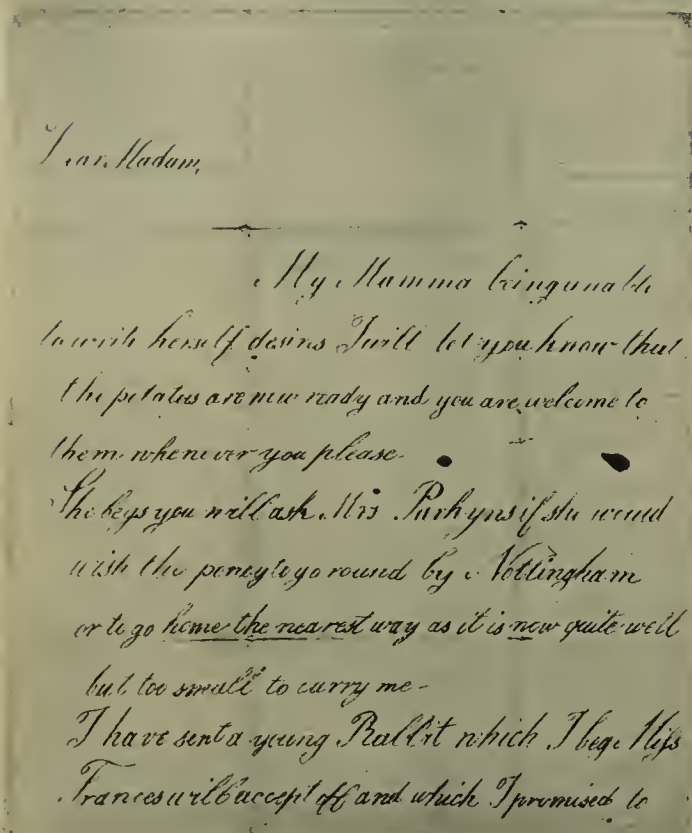 Dear Madam,
My Mamma being unable
to write herself desires I will let you know that
the potatos are now ready and you are welcome to
them whenever you please.
She begs you will ask Mrs Parkyns if she would
wish the poney to go round by Nottingham
or to go home the nearest way as it is now quite well
but too small to carry me -
I have sent a young Rabbit which I beg Miſs
Frances will accept off and which I promised to